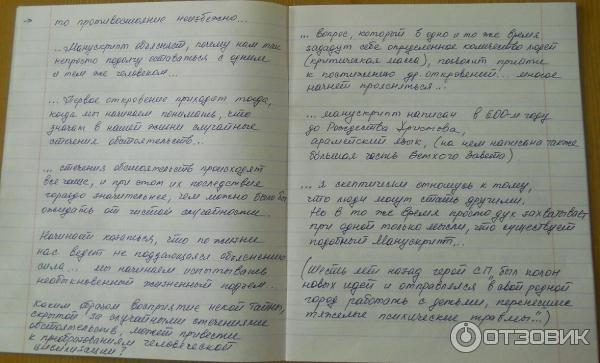 → то противостояние неизбежно...
...Манускрипт объясняет, почему нам так
непросто подолгу оставаться с одним
и тем же человеком...
...Первое откровение приходит тогда,
когда мы начинаем понимать, что
значат в нашей жизни случайные
стечения обстоятельств...
... стечения обстоятельств происходят
все чаще, и при этом их последствия
гораздо значительнее, чем можно было бы
ожидать от чистой случайности.
Начинает казаться, что по жизни
нас ведет не поддающаяся объяснению
сила... мы начинаем испытывать
необыкновенный жизненный подъем...
Каким образом восприятие некой тайны,
скрытой за случайными стечениями
обстоятельств, может привести
к преобразованиям человеческой
цивилизации?
... вопрос, который в одно и то же время
зададут себе определенное количество людей
(критическая масса), позволит прийти
к постижению др. откровений... многое
начнет проясняться...
... манускрипт написан в 600-м году
до Рождества Христова,
арамейский язык, (на нем написана также
большая часть Ветхого Завета)
... я скептически отношусь к тому,
что люди могут стать другими.
Но в то же время просто дух захватывает
при одной только мысли, что существует
подобный Манускрипт...
(Шесть лет назад герой СП „был полон
новых идей и отправлялся в свой родной
город работать с детьми, перенесшие
тяжелые психические травмы...")
ОТЗОВИК